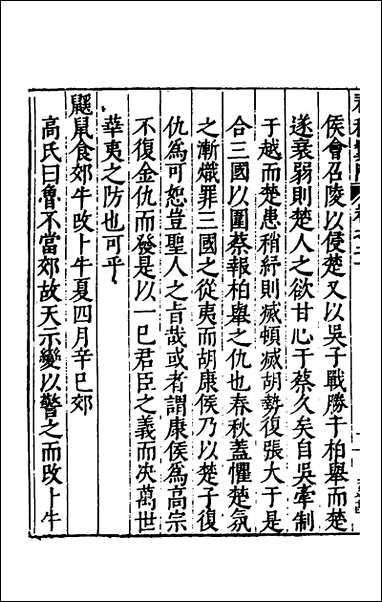 侯會召陵以侵楚又以吳子戰勝于柏舉而楚
遂衰弱則楚人之欲甘心于蔡久矣自吳牽制
于越而楚患稍紓則滅頓滅胡勢復張大于是
合三國以圍蔡報柏舉之仇也春秋蓋懼楚氛
之漸熾罪三國之從夷而胡康侯乃以楚子復
仇為可恕豈聖人之旨哉或者謂康侯為高宗
不復金仇而發是以一巳君臣之義而决萬世
華夷之防也可乎
鼷鼠食郊牛改卜牛夏四月辛巳郊
高氏曰魯不當郊故天示變以警之而改卜牛